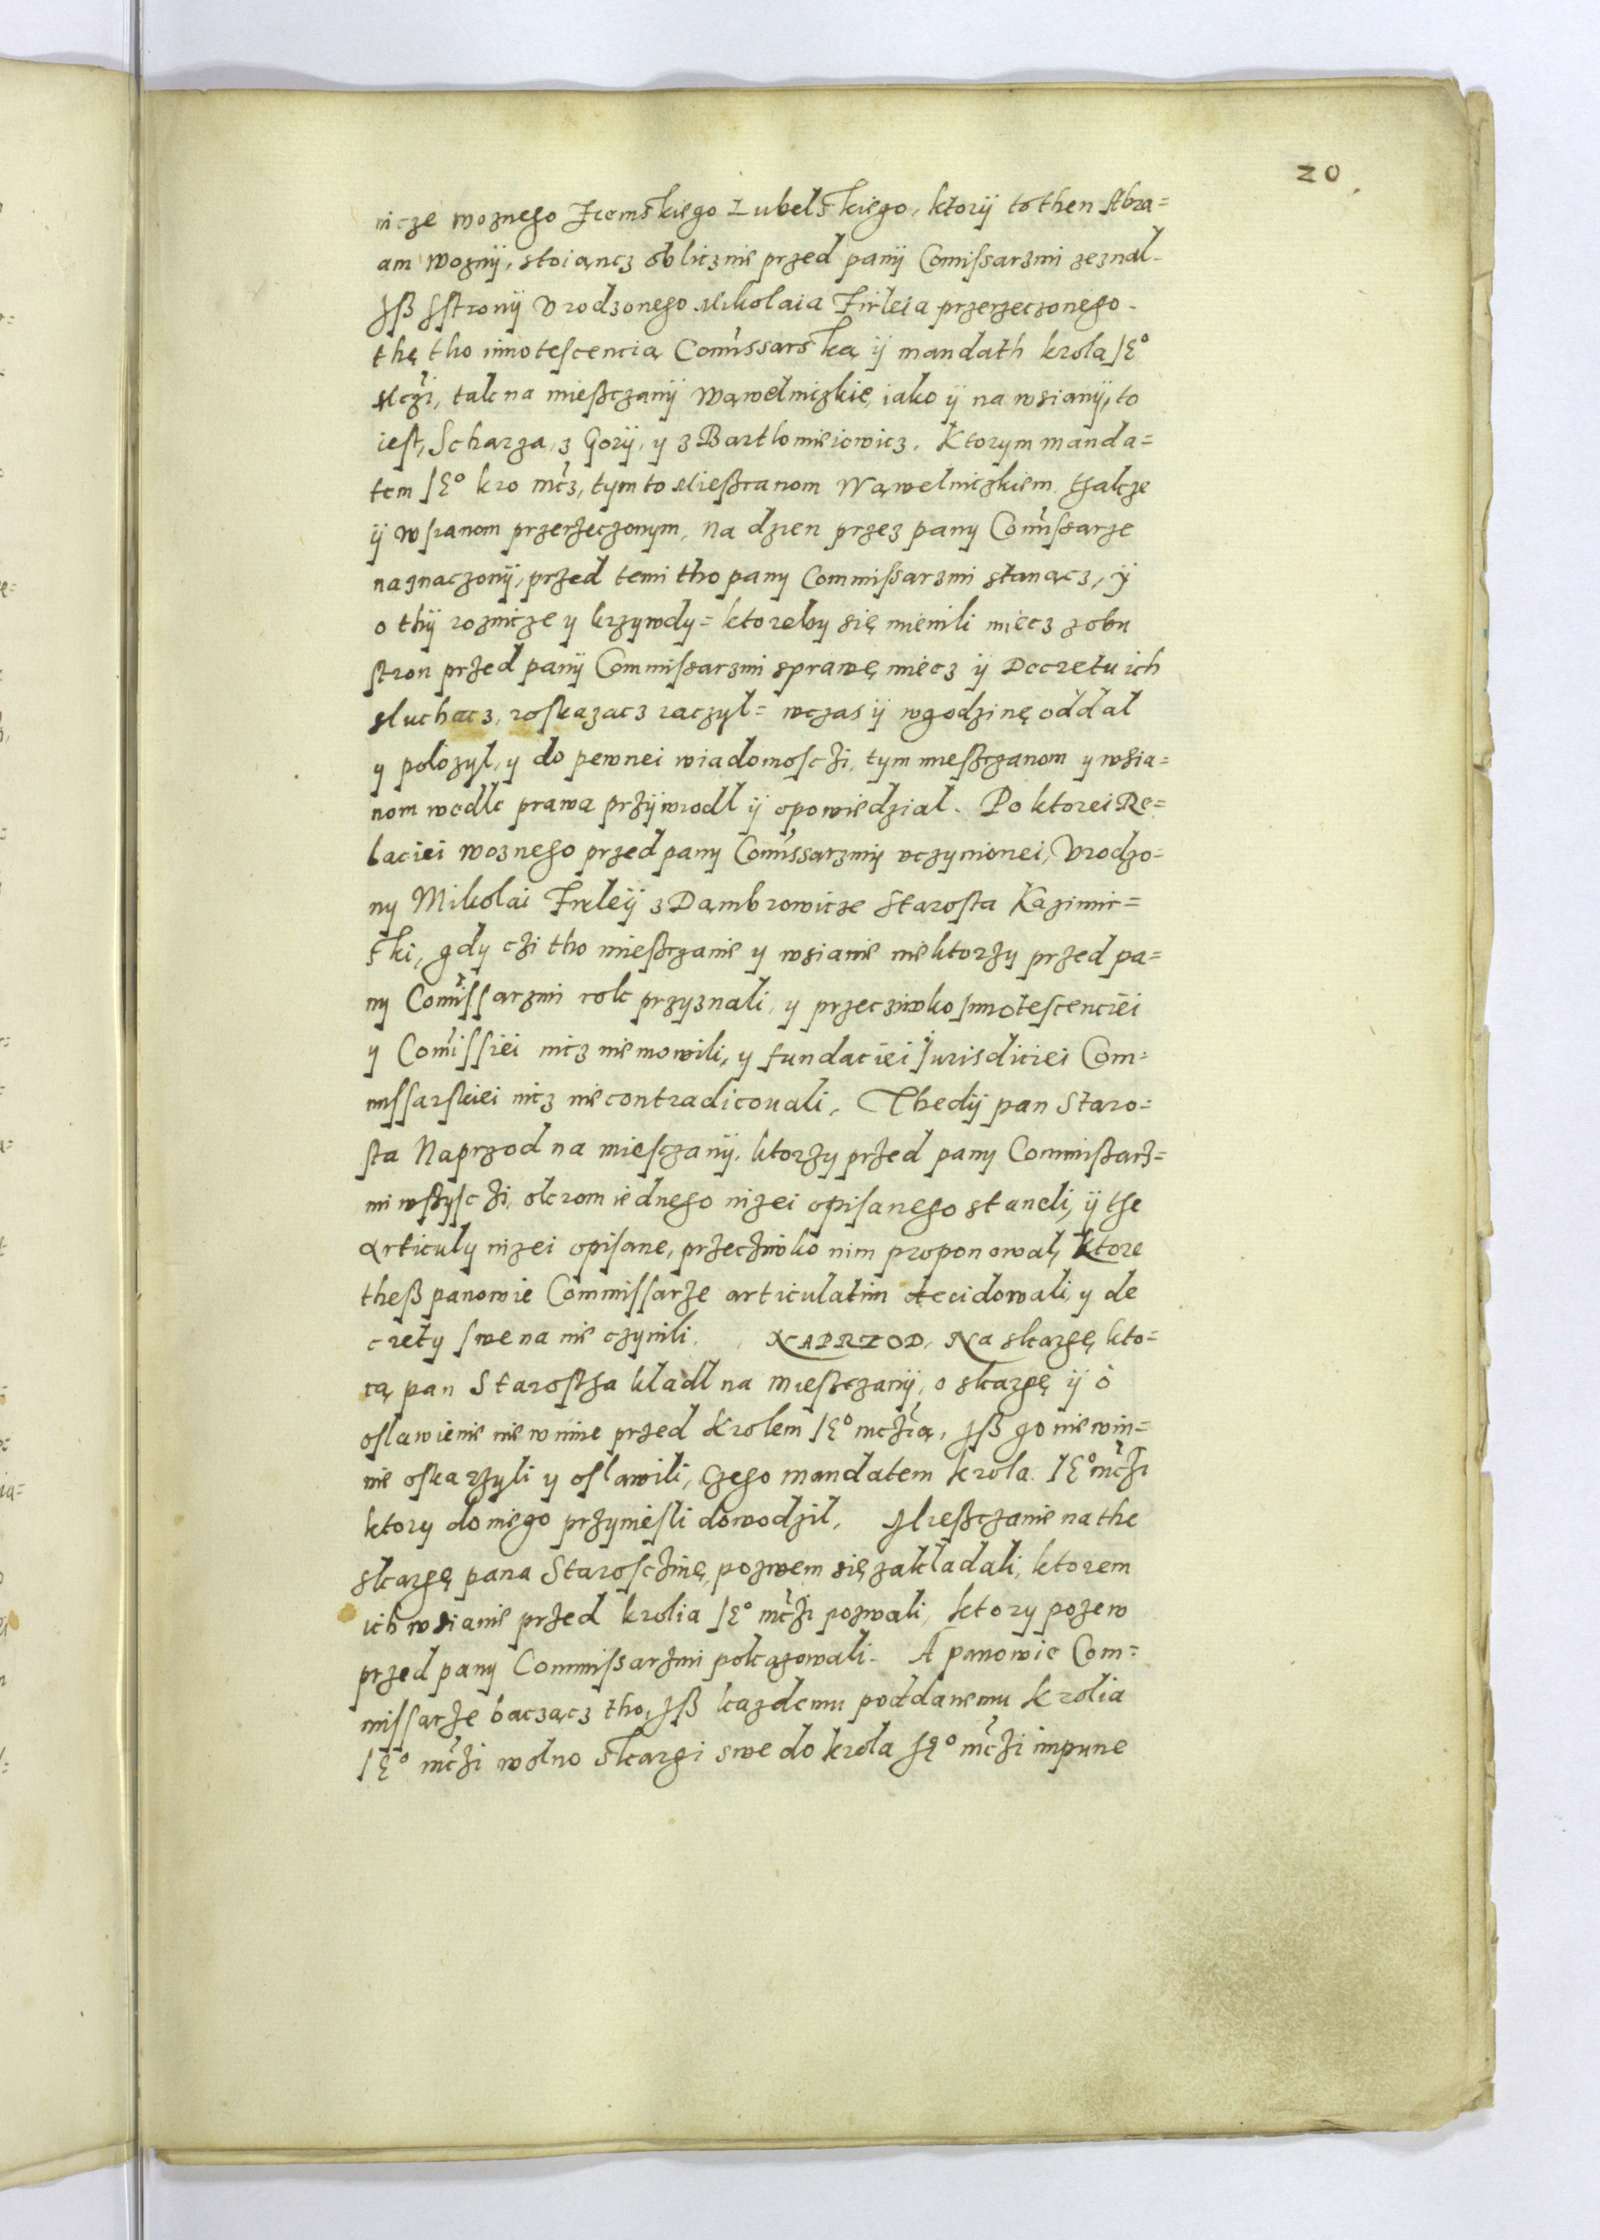 20
nicze woznego Zęmskięgo Lubelskięgo, ktorÿ tothen Abra=
am woznÿ, stoiąncz obliczniе przed panÿ Comissarzmi zeznal.
Jß Zstronÿ Urodzonego Mikolaia Firleia przerzeczonego.
thę tho innotescencią Comissarską ÿ mandath krola JE°
Mczi, tak na mießczanÿ Wąwelniczkie, iako ÿ na wsianÿ, to
iest, Scharza, z Gorÿ, y z Bartlomieiowicz. Ktorym manda=
tem JE° kro mcz, tymto Mießcanom Wąwelniczkiem, tzakze
ÿ wsianom przerzeczonym, na dzien przez pany Comissarze
naznaczonÿ, przed temi tho pany Commissarzmi stanącz, ÿ
o thÿ roznicze y krzywdy= ktoreby się mienili miecz zobu
stron przed panÿ Commissarzmi sprawę miecz ÿ Decretu ich
sluchacz, roskazacz raczyl= wczas ÿ wgodzinę oddal
y polozyl, y do pewnei wiadomosczi, tym mießczanom y wsia=
nom wedle prawa przÿwiodl ÿ opowiedzial. Po ktorei Re=
laciei woznego przed pany Comissarzmiy uczynionei, Urodzo=
ny Mikolai Firleÿ z Dąmbrowicze Starosta Kazimir=
ski, gdy czi tho mießczanie y wsianie niektorzy przed pa=
ny Comissarzmi rok przyznali, y przecziwko innotescenciei
y Comissiei nicz nie mowili, y fundaciei Jurisdiciei Com=
missarskiei nicz nie contradicouali, Thedÿ pan Staro=
sta Naprzod na miesczanÿ, ktorzy przed pany Commißarz=
mi wszysczi, okrom iednego nizei opisanego staneli, ÿ tze
Articuly nizei opisane, przecziwko nim proponowal, Ktore
theß panowie Commissarze articulatim decidowali, y de
crety swe na nie czynili. NAPRZOD, Na skargę kto=
rą pan Starostza kladl na mießczanÿ, o skargę ÿ o
oslawienie niewinne przed Krolem JE° mczią, Jß go niewin=
nie oskarzyli y oslawili, czego mandatem krola JE° mczi
ktory doniego przyniesli dowodzil, Mießczanie na the
skargę pana Starosczinę, pozwem się zakladali, ktorem
ich wsianie przed krolia JE° mczi pozwali, ktory pozew
przed pany Commissarzmi pokazowali. A panowie Com=
missarze baczącz tho, Jß kazdemu poddanemu Krolia
JE° mczi wolno skargi swe do krola JE° mczi impune